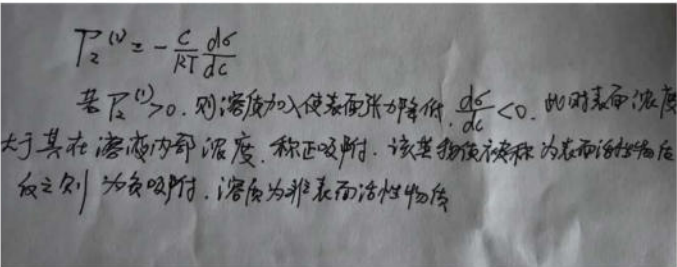 Γ₂⁽¹⁾ = - c/RT dσ/dc
若Γ₂⁽¹⁾>0. 则溶质加入使表面张力降低. dσ/dc<0. 此时表面浓度
大于其在溶液内部浓度. 称正吸附. 该类物质被称为表面活性物质
反之则为负吸附. 溶质为非表面活性物质